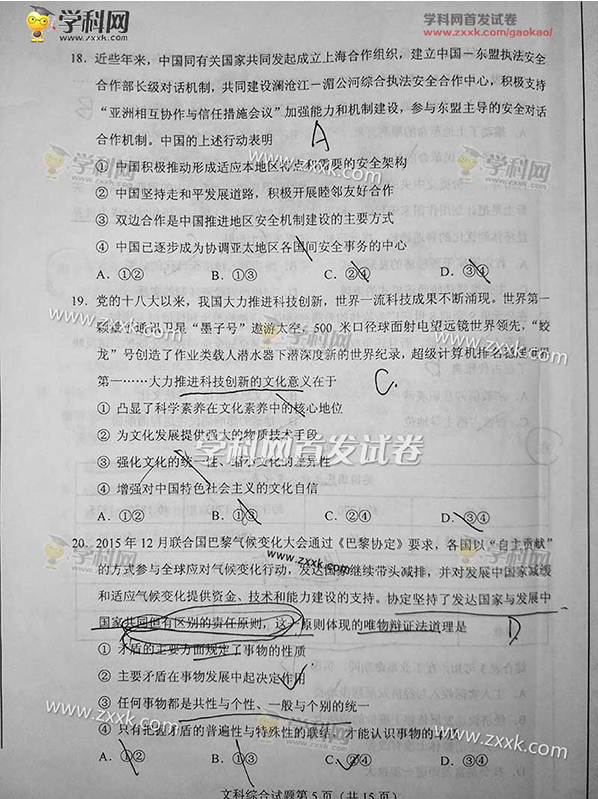 学科网
www.zxxk.com
学科网首发试卷
www.zxxk.com/gaokao/
18. 近些年来，中国同有关国家共同发起成立上海合作组织，建立中国—东盟执法安全
合作部长级对话机制，共同建设澜沧江—湄公河综合执法安全合作中心，积极支持
“亚洲相互协作与信任措施会议”加强能力和机制建设，参与东盟主导的安全对话
合作机制。中国的上述行动表明
A
① 中国积极推动形成适应本地区特点和需要的安全架构
② 中国坚持走和平发展道路，积极开展睦邻友好合作
③ 双边合作是中国推进地区安全机制建设的主要方式
④ 中国已逐步成为协调亚太地区各国间安全事务的中心
A. ①② B. ①③ C. ②④ D. ③④
19. 党的十八大以来，我国大力推进科技创新，世界一流科技成果不断涌现。世界第一
颗量子通讯卫星“墨子号”遨游太空，500 米口径球面射电望远镜世界领先，“蛟
龙”号创造了作业类载人潜水器下潜深度新的世界纪录，超级计算机排名世界
第一……大力推进科技创新的文化意义在于
C.
① 凸显了科学素养在文化素养中的核心地位
② 为文化发展提供强大的物质技术手段
③ 强化文化的统一性、缩小文化的差异性
④ 增强对中国特色社会主义的文化自信
A. ①② B. ①③ C. ②④ D. ③④
20. 2015 年 12 月联合国巴黎气候变化大会通过《巴黎协定》要求，各国以“自主贡献”
的方式参与全球应对气候变化行动，发达国家继续带头减排，并对发展中国家减缓
和适应气候变化提供资金、技术和能力建设的支持。协定坚持了发达国家与发展中
国家共同但有区别的责任原则，这一原则体现的唯物辩证法道理是
D
① 矛盾的主要方面规定了事物的性质
② 主要矛盾在事物发展中起决定作用
③ 任何事物都是共性与个性、一般与个别的统一
④ 只有把握矛盾的普遍性与特殊性的联结，才能认识事物的
A. ①② B. ①③ C. ②④ D. ③④
文科综合试题第 5 页（共 15 页）